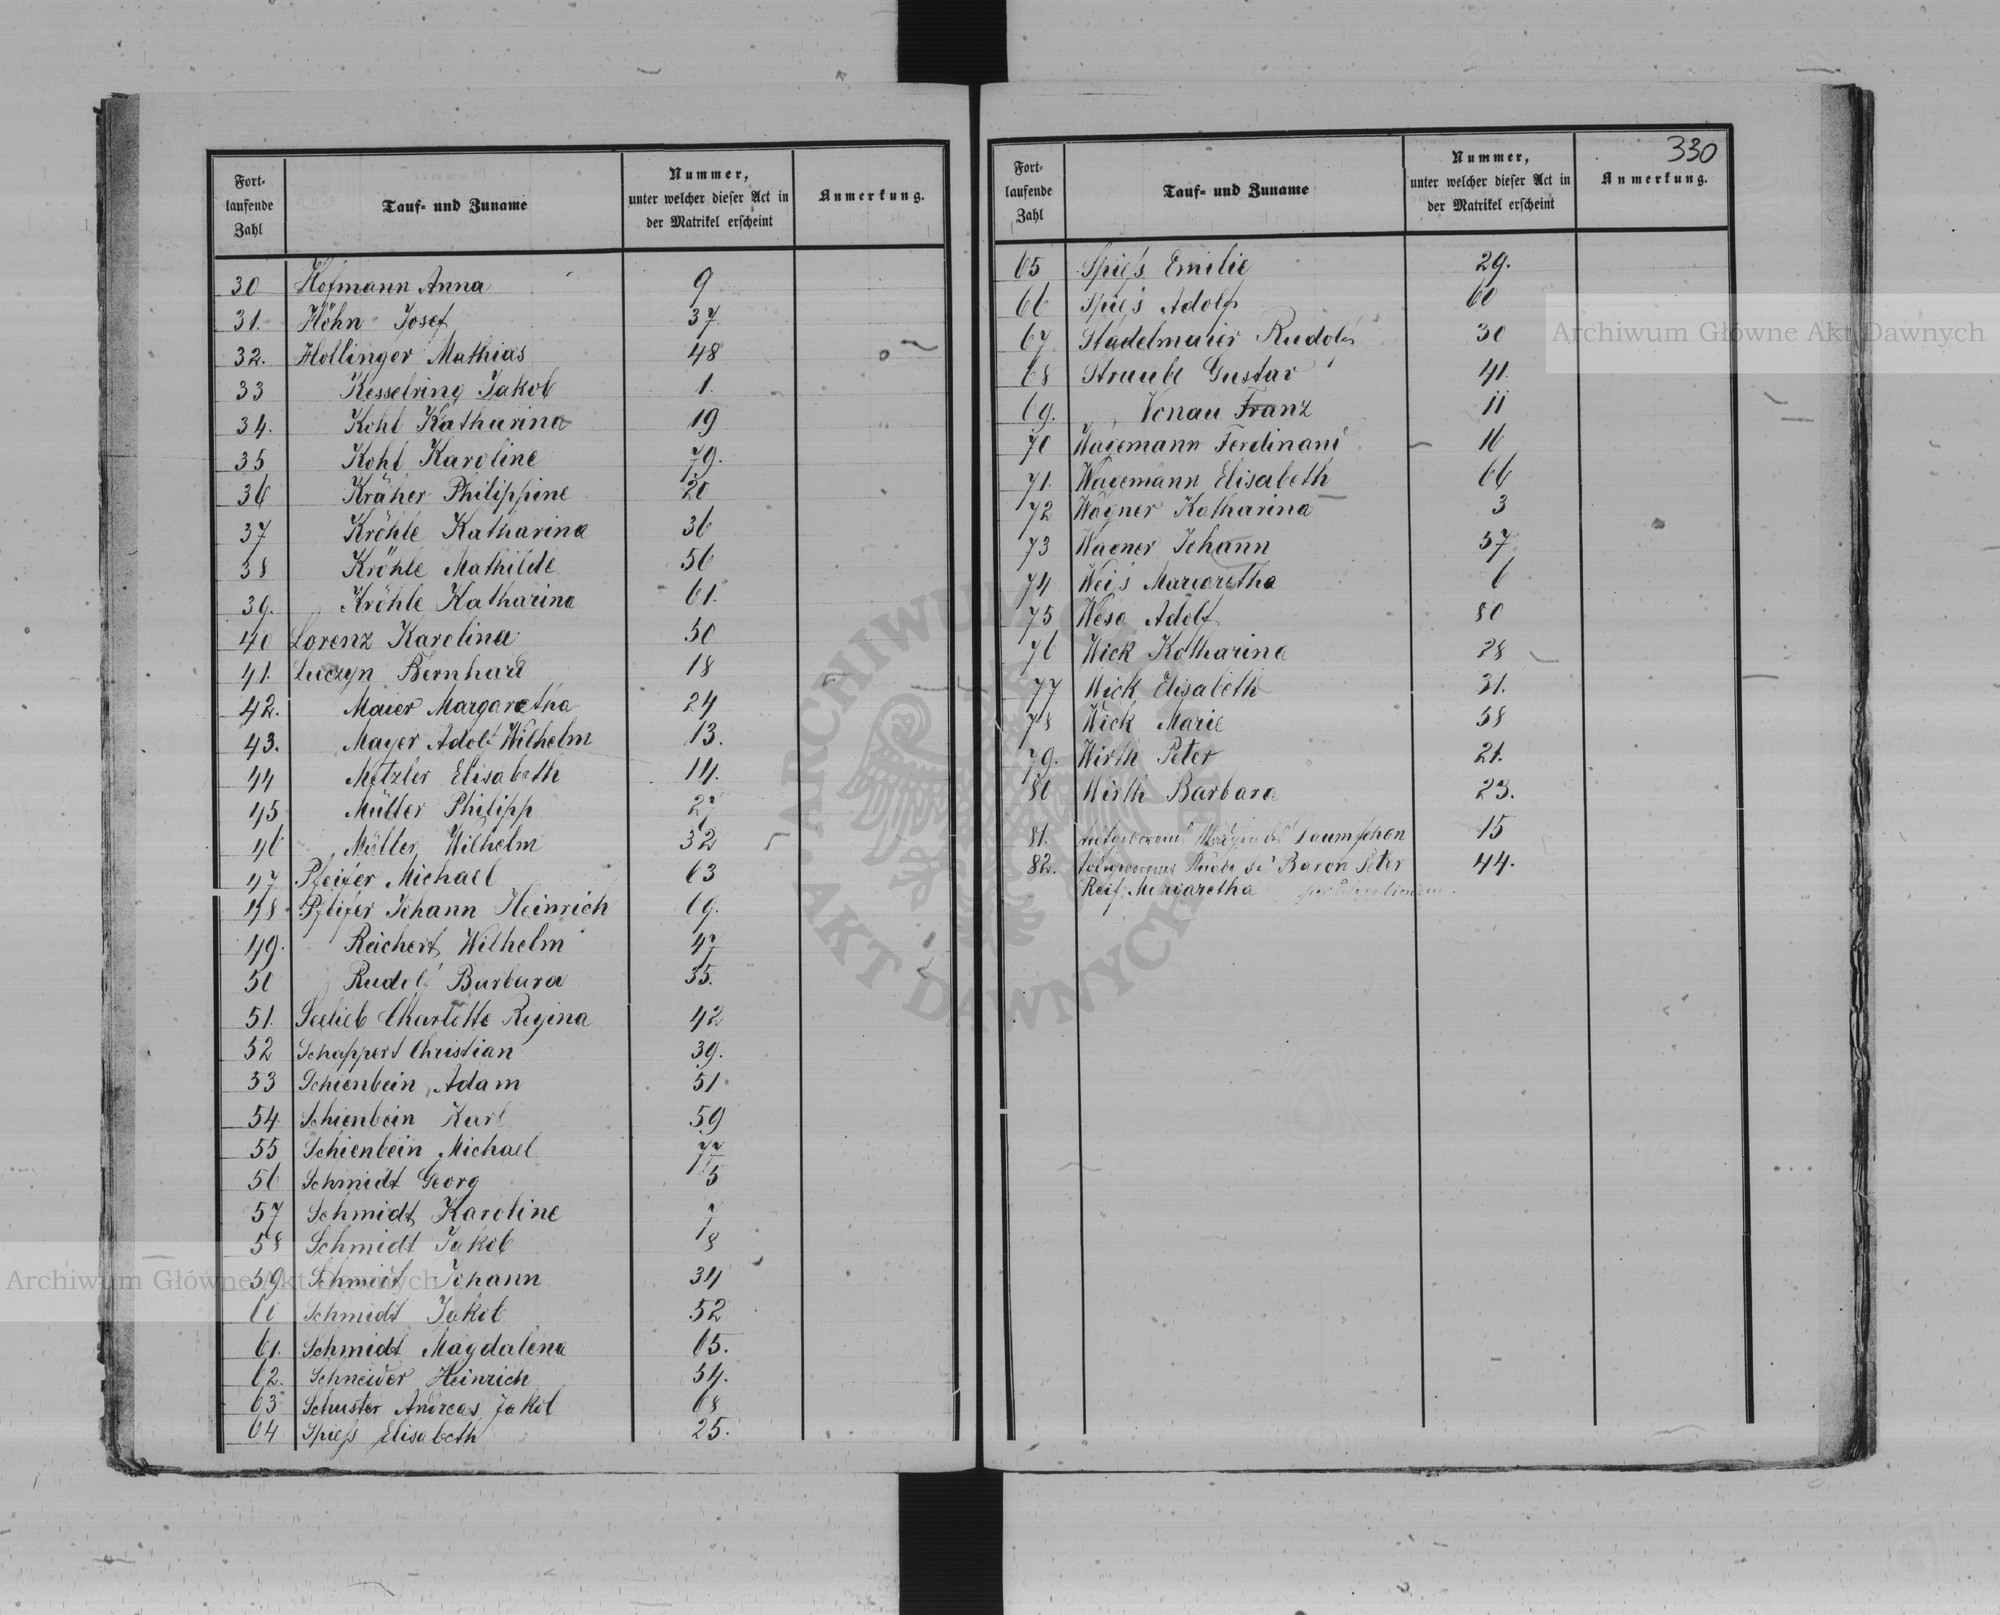 330
Fort-
laufende
Zahl
Tauf- und Zuname
Nummer,
unter welcher dieser Act in
der Matrikel erscheint
Anmerkung.
30 Hofmann Anna 9
31. Höhn Josef 37
32. Hollinger Mathias 48
33 Kesselring Jakob 1.
34. Kohl Katharina 19
35 Kohl Karoline 79.
36 Kräher Philippine 20
37 Kröhle Katharina 36
38 Kröhle Mathilde 56
39. Kröhle Katharina 61.
40 Lorenz Karolina 50
41. Luczyn Bernhard 18
42. Maier Margaretha 24
43. Mayer Adolf Wilhelm 13.
44 Metzler Elisabeth 14.
45 Müller Philipp 27
46 Müller Wilhelm 32
47 Pfeifer Michael 63
48 Pfeifer Johann Heinrich 69.
49. Reichert Wilhelm 47
50 Rudolf Barbara 35.
51. Seelieb Charlotte Regina 42
52 Schappert Christian 39.
53 Schienbein Adam 51
54. Schienbein Karl 59
55 Schienbein Michael 77
56 Schmidt Georg 5
57 Schmidt Karoline 7
58 Schmidt Jakob 8
59 Schmidt Johann 34
60 Schmidt Jakob 52
61. Schmidt Magdalena 65.
62. Schneider Heinrich 54.
63 Schuster Andreas Jakob 68
64 Spieß Elisabeth 25.
Fort-
laufende
Zahl
Tauf- und Zuname
Nummer,
unter welcher dieser Act in
der Matrikel erscheint
Anmerkung.
65 Spieß Emilie 29.
66 Spieß Adolf 60
67 Stadelmaier Rudolf 30
68 Straube Gustav 41.
69. Vonau Franz 11
70 Wagemann Ferdinand 16
71. Wagemann Elisabeth 66
72 Wagner Katharina 3
73 Wagner Johann 57
74 Weiß Margaretha 6
75 Wesa Adolf 80
76 Wick Katharina 28
77 Wick Elisabeth 31.
78 Wick Marie 58
79. Wirth Peter 21.
80 Wirth Barbara 23.
81. 15
82. Baron Peter 44.
Reif Margaretha
Archiwum Główne Akt Dawnych
Archiwum Główne Akt Dawnych
ARCHIWUM GŁÓWNE AKT DAWNYCH